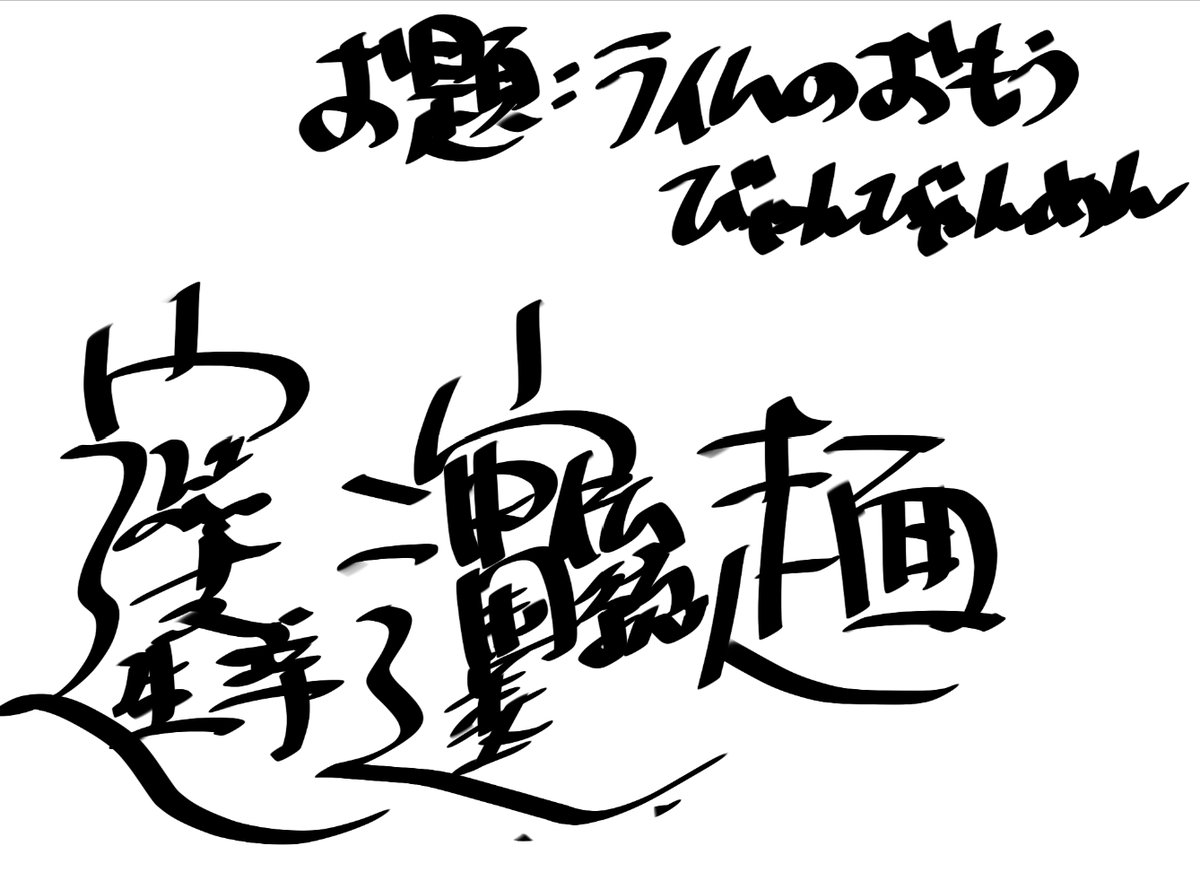 お題：ライムのおもう
びゃんびゃんめん
麺